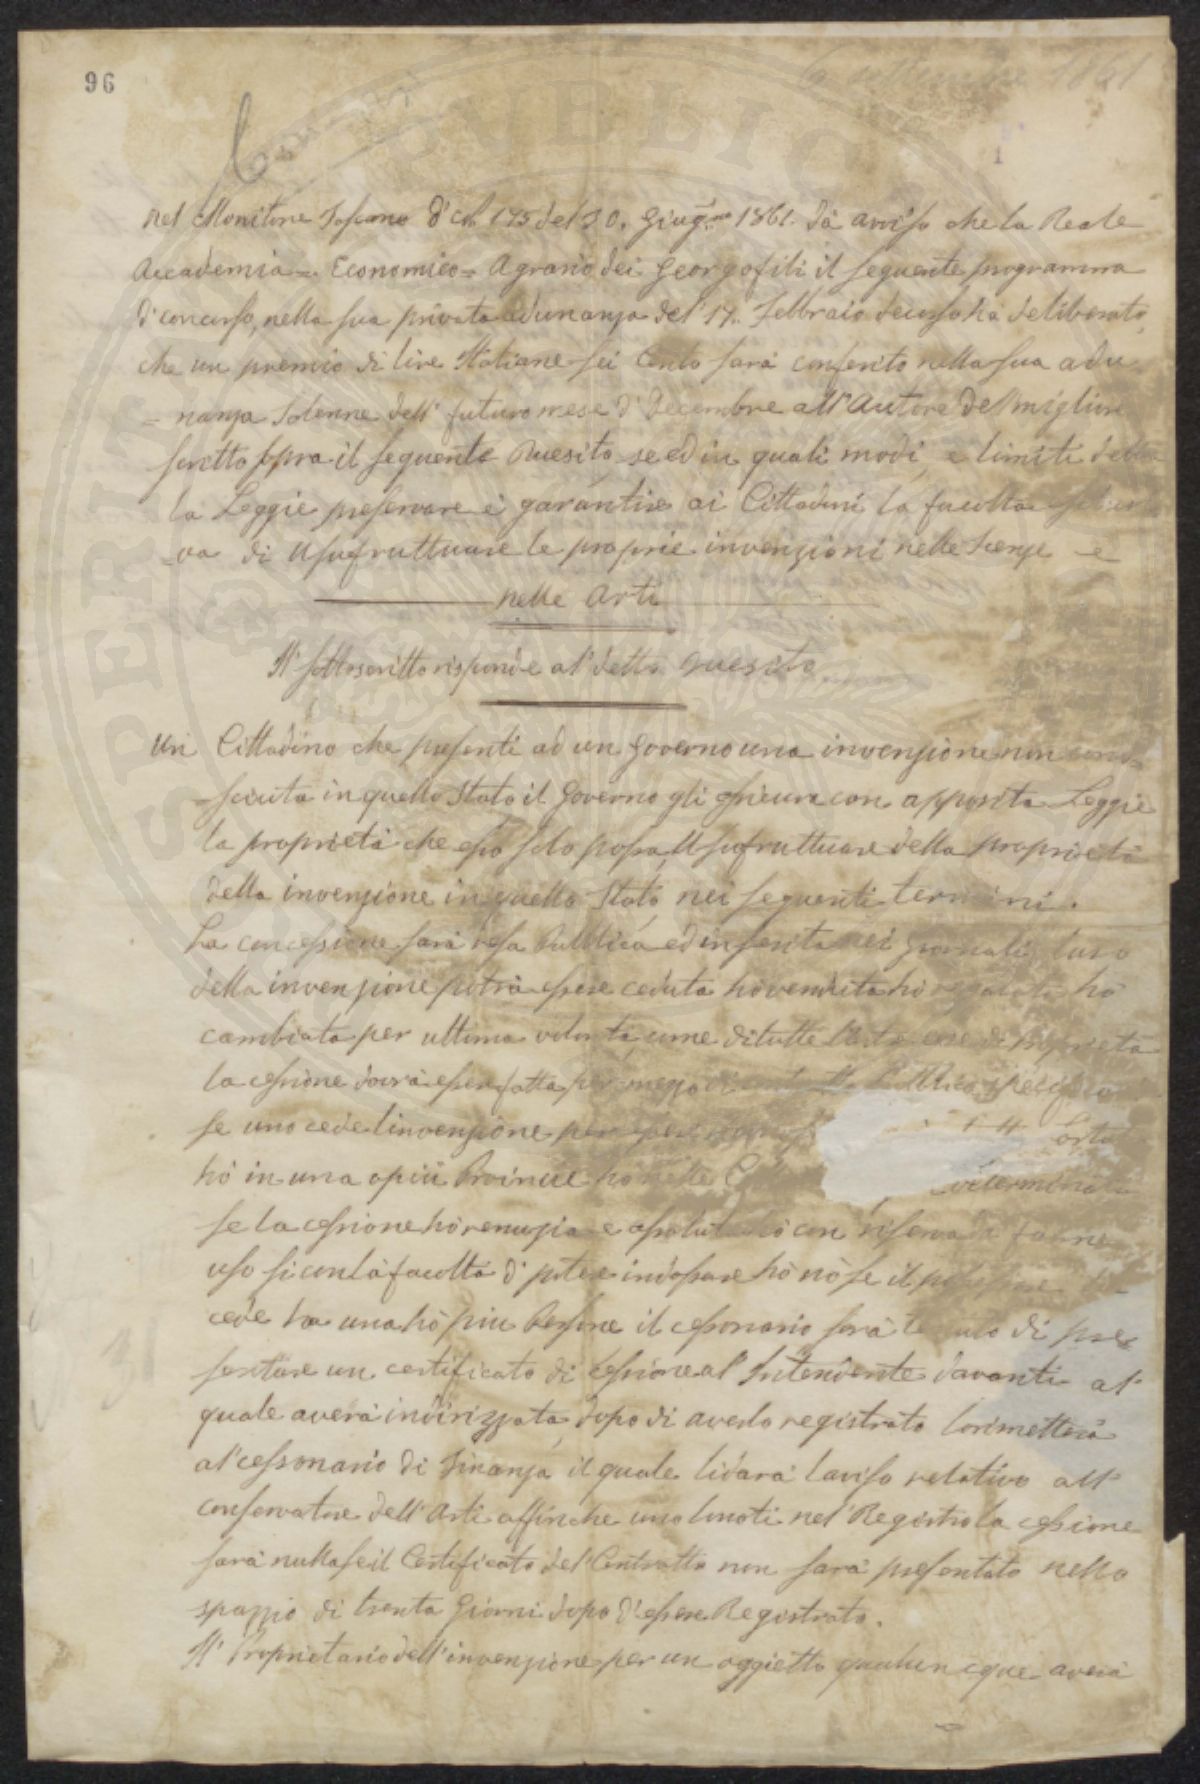 96
6 settembre 1861
nel Monitore Toscano d' N. 175 del 30. Giugno 1861. dà avviso che la Reale
Accademia = Economico = Agrario dei Georgofili il seguente programma
d' concorso, nella sua privata adunanza del 17. Febbraio decorso ha deliberato,
che un premio di lire Italiane sei Cento sarà conferito nella sua adu
= nanza Solenne dell' futuro mese d' Decembre all' Autore del migliore
scritto sopra il seguente Quesito se ed in quali modi, e limiti debba
la Leggie preservare e garantire ai Cittadini la facoltà
= va di Usufruttuare le proprie invenzioni nelle Scienze e
nelle Arti
Il sottoscritto risponde al' detto Quesito
Un Cittadino che presenti ad un Governo una invenzione non cono=
= sciuta in quello Stato il Governo gli assicura con apposita Leggie
la proprietà che esso solo possa Usufruttuare della proprietà
della invenzione in quello Stato, nei seguenti termini.
La concessione sarà resa Pubblica ed inserita nei Giornali, luso
della invenzione potrà essere ceduta hò venduta hò regalata hò
cambiata per ultima volontà, come di tutte l'altre cose di proprietà
la cessione dovrà essere fatta per mezzo di Pubblico specifico
se uno cede linvenzione per
hò in una o più Provincie hò nelle determinato
se la cessione hò renuzia e assoluta hò con riserva di farne
uso si con la facoltà d' potere indossare hò nò se il possessore la
cede ha una hò più Persone il cessonario sarà tenuto di pre
sentare un certificato di Cessione al' Intendente davanti al'
quale averà indirizzata, dopo di averlo registrato lo rimetterà
al' cessonario di Finanza, il quale lidarà laviso relativo all'
conservatore dell' Arti affinche uno lo noti nel' Registro la cessione
sarà nulla se il Certificato del' Contratto non sarà presentato nello
spazzio di trenta Giorni dopo d' essere Registrato.
Il' Proprietario dell' invenzione per un oggietto qualun que averà